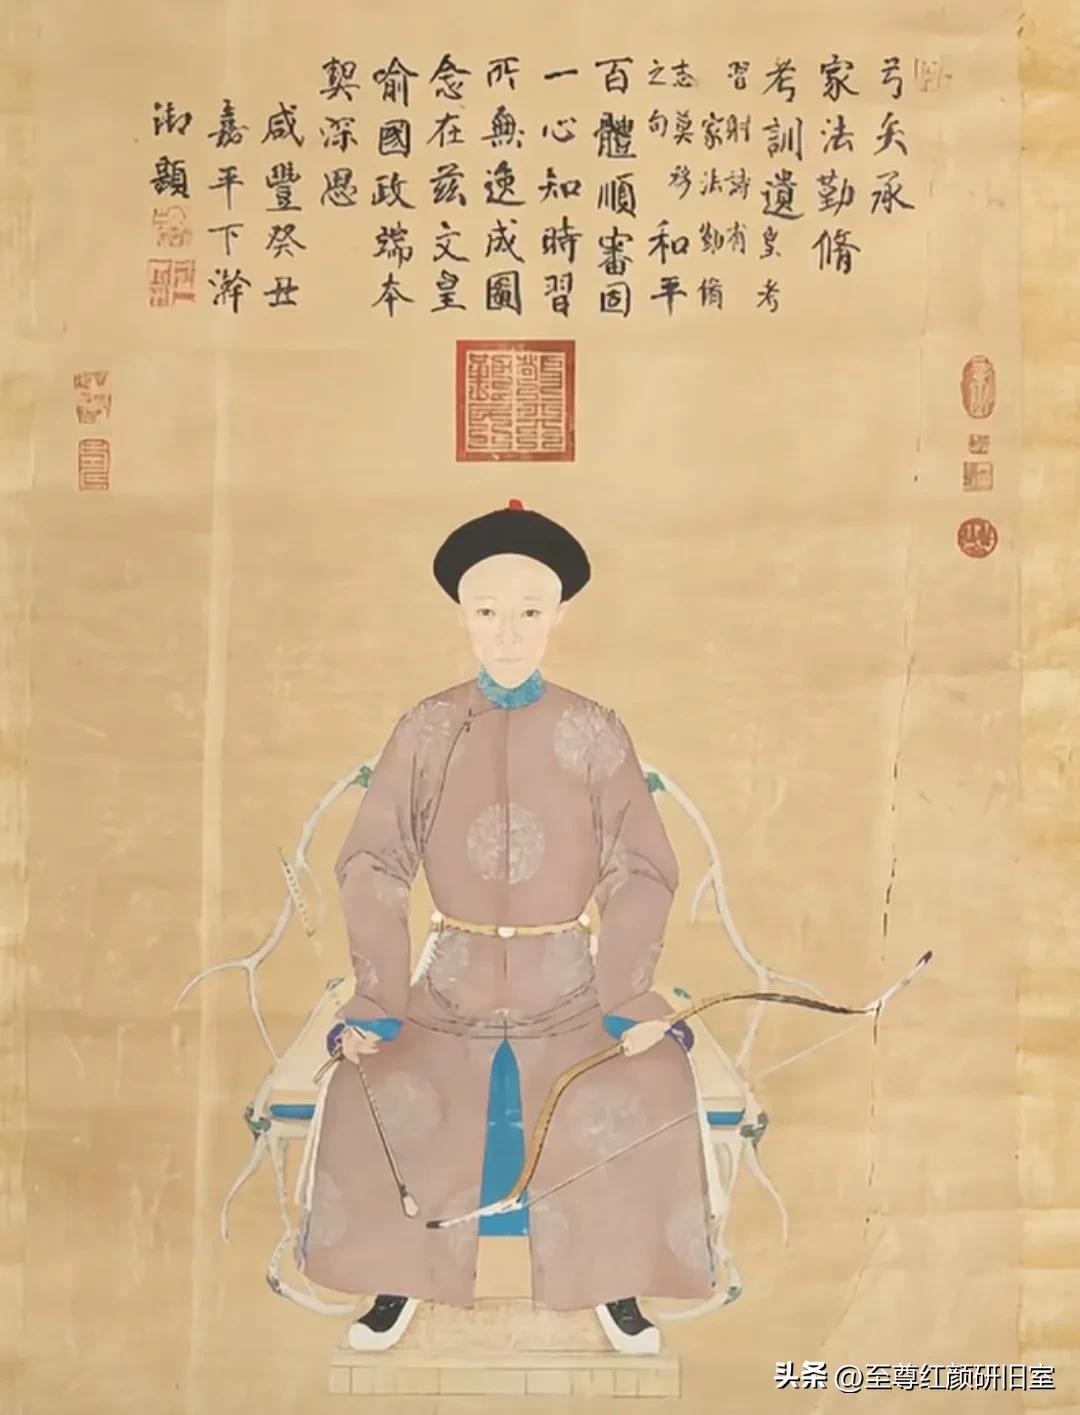 弓矢承
家法勤脩
考訓遺皇考
習射詩有
家法勤脩
志莫移
之句和平
百體順審固
一心知時習
所無逸成圖
念在茲文皇
喻國政端本
契深思
咸豐癸丑
嘉平下澣
御題
头条 @至尊红颜研旧室